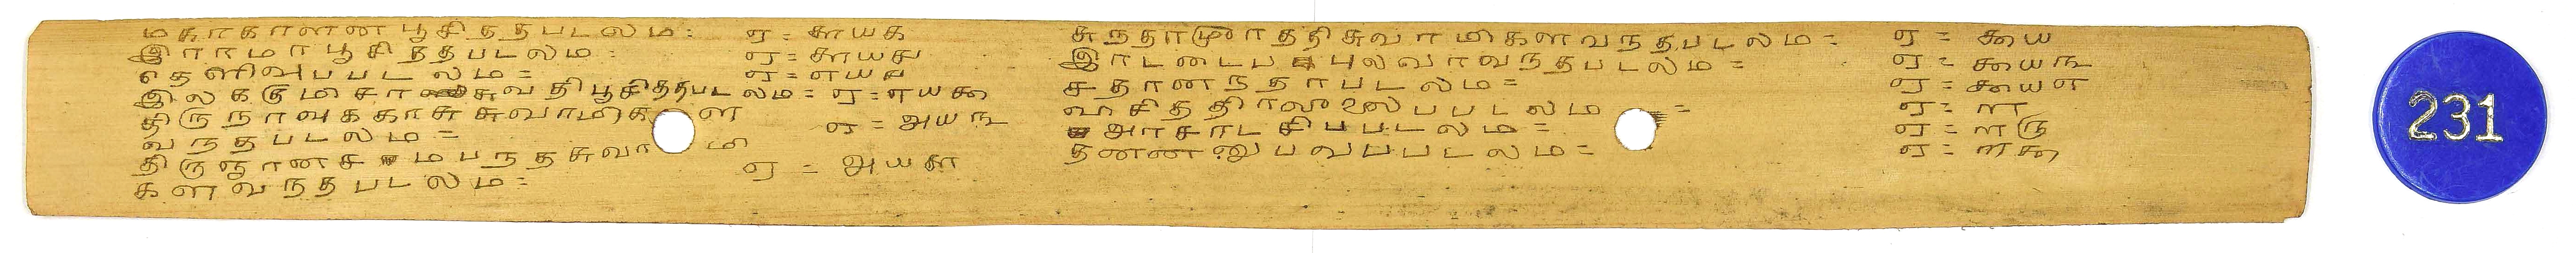 மகாகாளன பூசிததபடலம= ஏ= சுயக
இராமா பூசிததபடலம= ஏ=சுயசு
தெளிவுபபடலம= ஏ=எயஉ
இலககுமிசரசுவதிபூசிததபடலம= ஏ=எயகூ
திருநாவுககரசுசுவாமிகள
வநதபடலம= ஏ=அயந
திருஞானசமபநதசுவாமி
களவநதபடலம= ஏ=அயஎ
சுநதரமூரததிசுவாமிகளவநதபடலம= ஏ= கூய
இரடடைபபுலவரவநதபடலம= ஏ= கூயந
சதானநதரபடலம= ஏ= கூயஎ
வசிததிரவலலபபடலம= ஏ= ௱
அரசாடசிபபடலம= ஏ= ௱ரு
தனனனுபவபபடலம= ஏ= ௱கூ
231